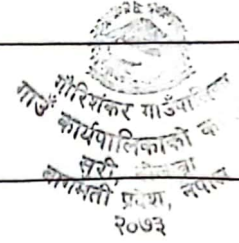 गौरिशंकर गाउँपालिका
गाउँ कार्यपालिकाको
सुरी,
बागमती प्रदेश, नेपाल
२०७३